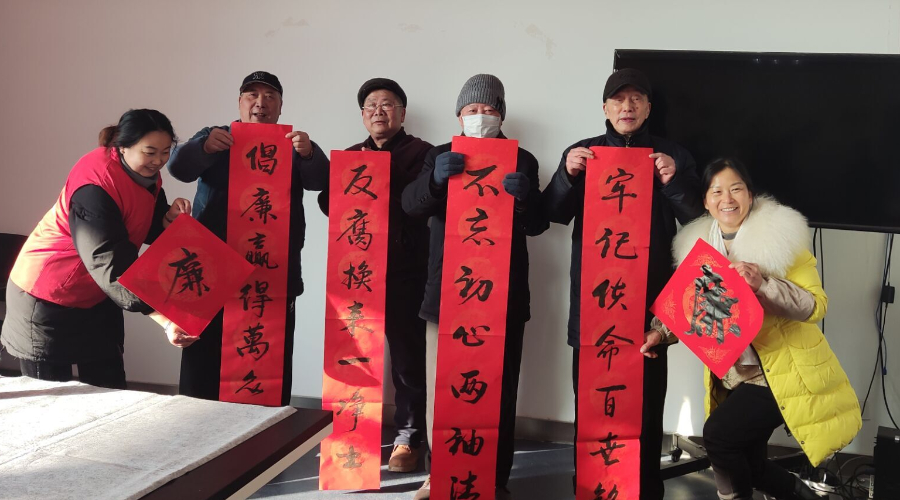 廉
倡廉赢得萬众
反腐换来一净土
不忘初心两袖清
牢记使命百世
廉